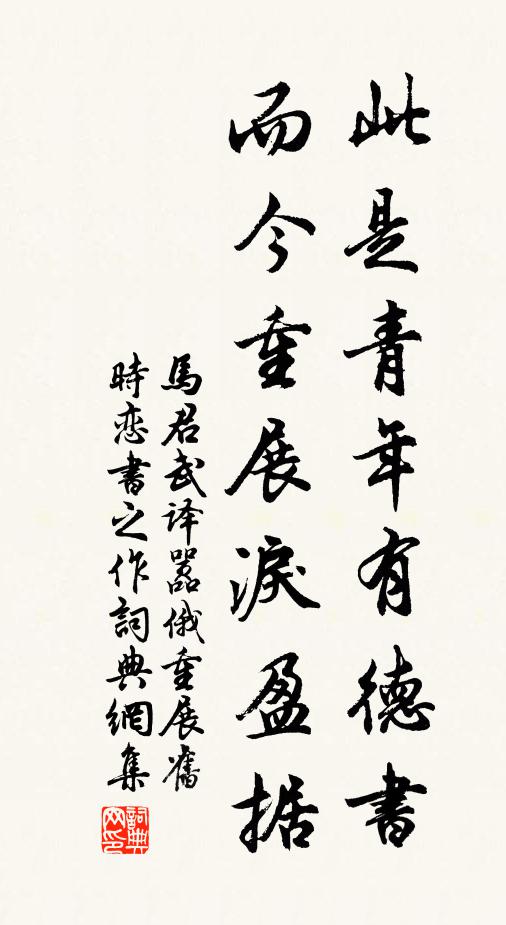 此是青年有德書
而今重展淚盈据
馬君武译嚣俄重展舊
時恋書之作詞典網集
詞典網印